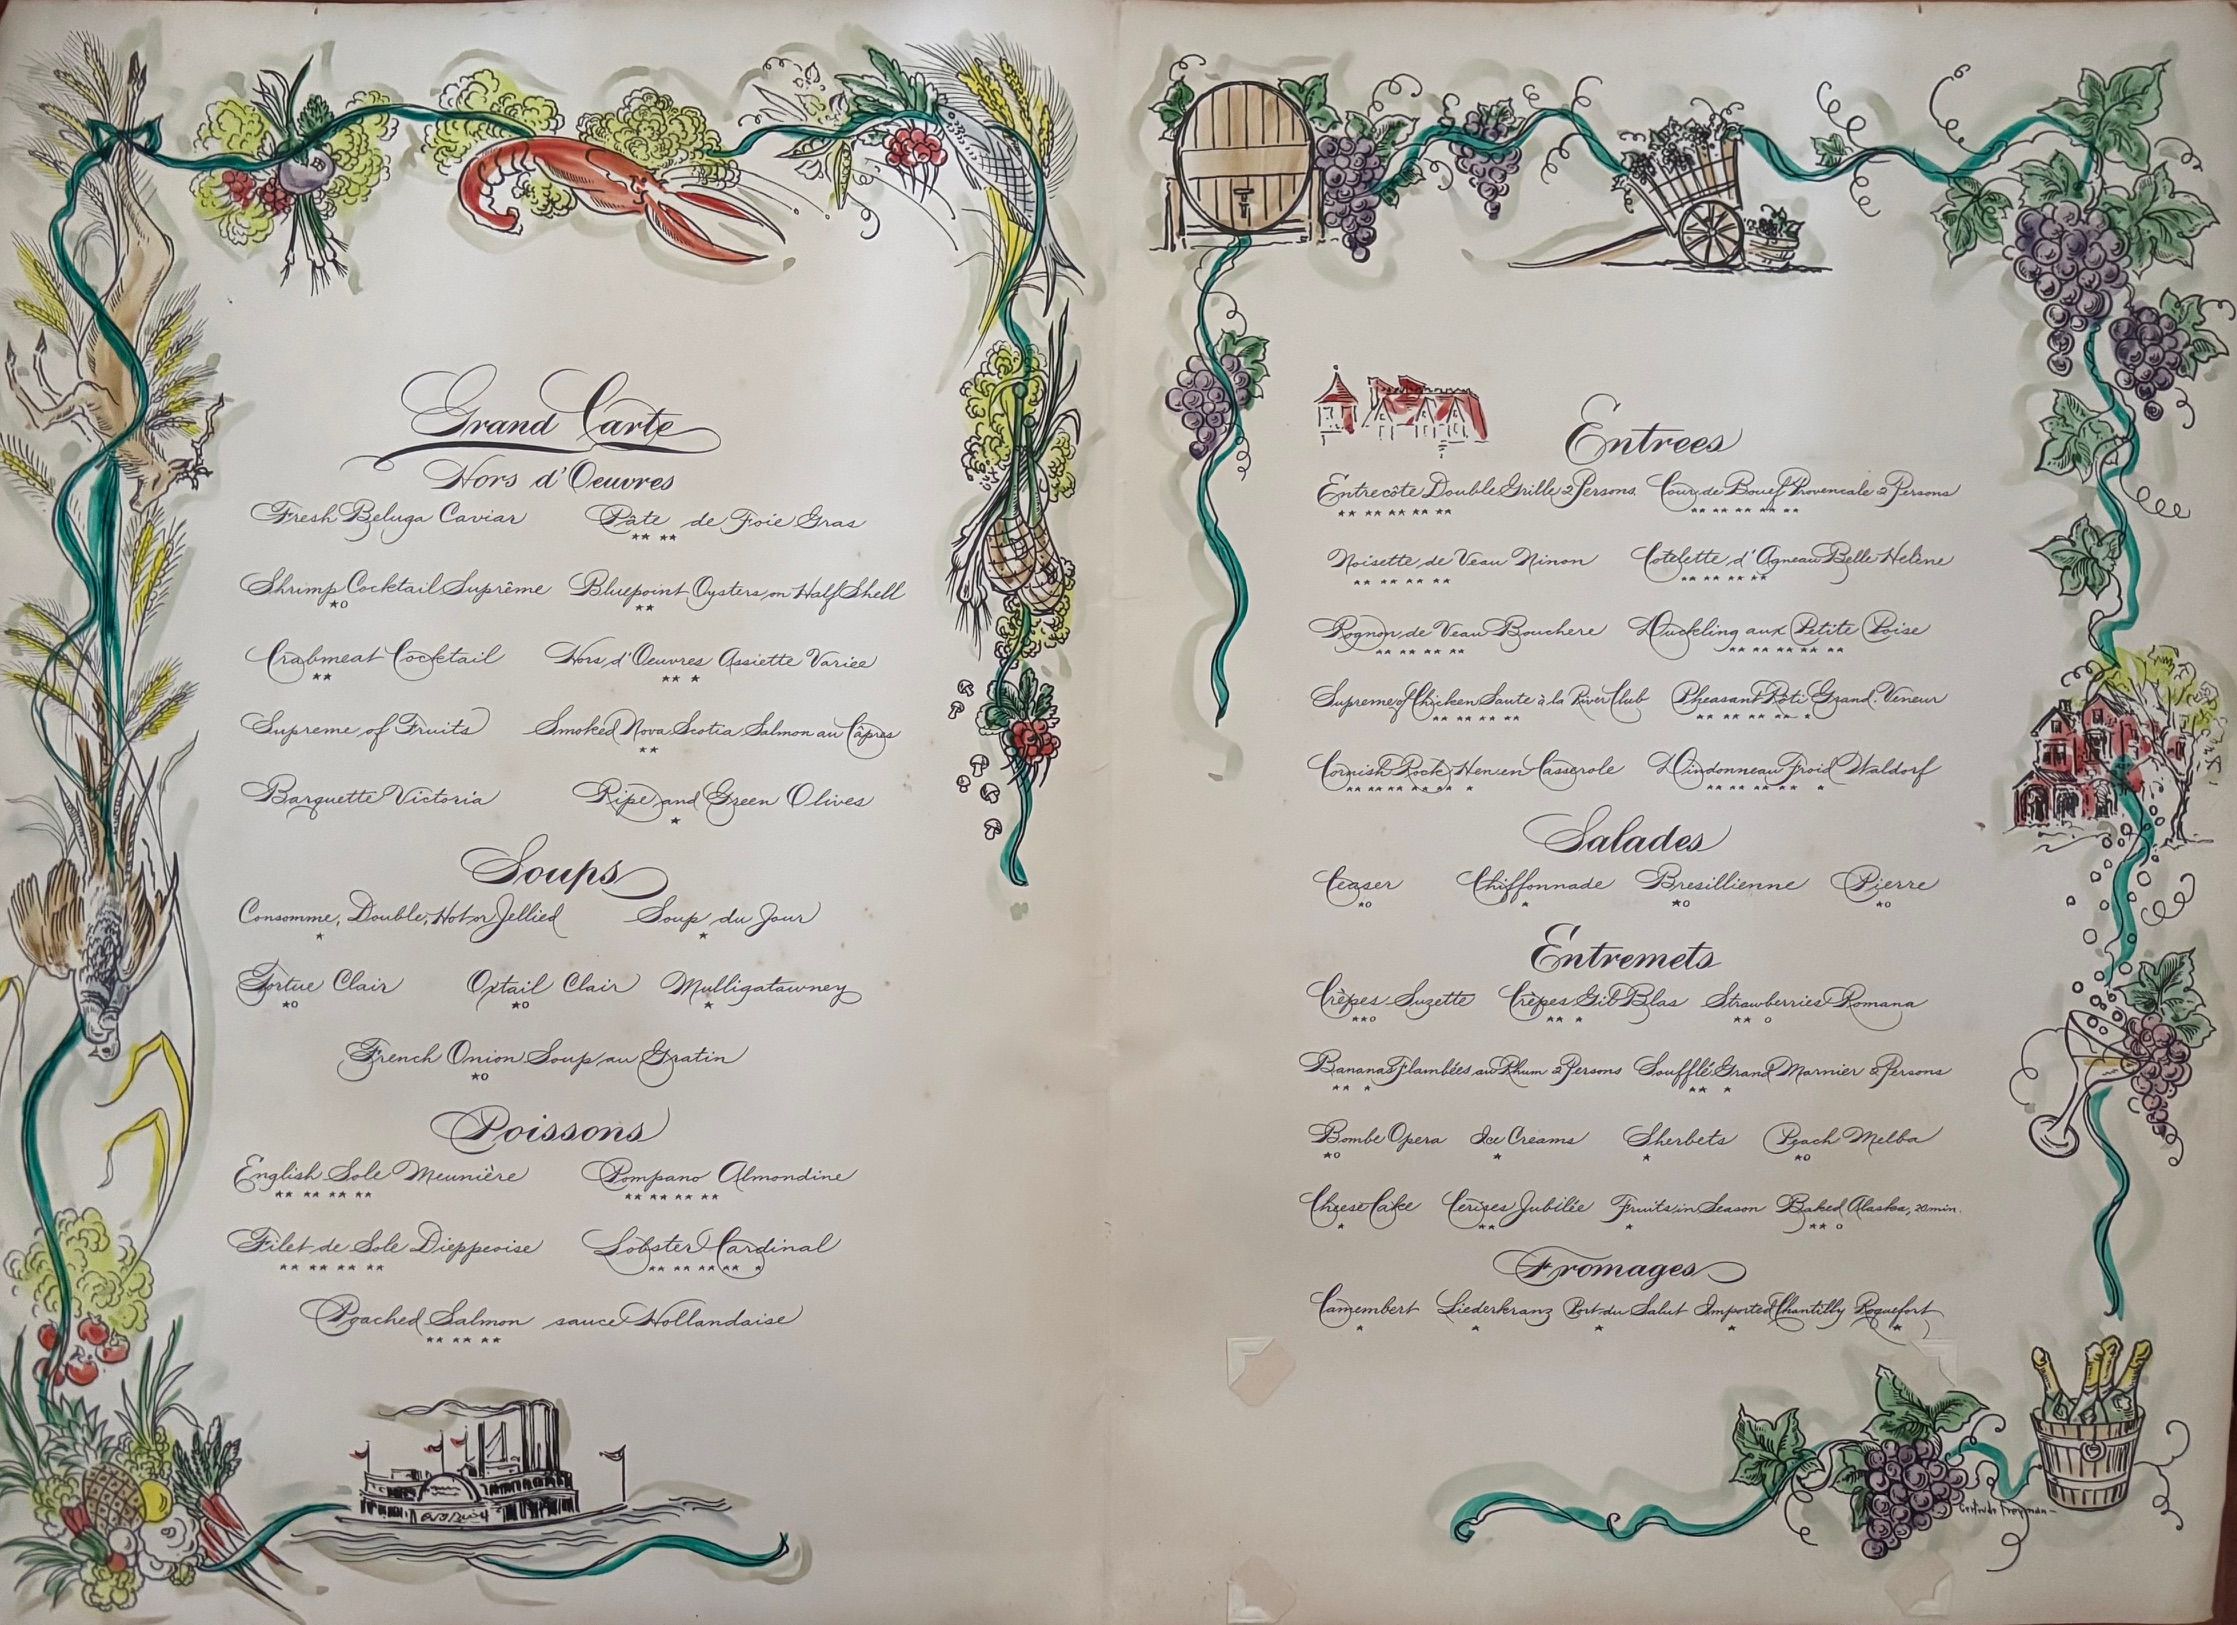 Grand Carte
Hors d'Oeuvres
Fresh Beluga Caviar Pâte de Foie Gras
** **
Shrimp Cocktail Suprême Bluepoint Oysters on Half Shell
*o **
Crabmeat Cocktail Hors d'Oeuvres Assiette Variee
** ** *
Supreme of Fruits Smoked Nova Scotia Salmon au Câpres
**
Barquette Victoria Ripe and Green Olives
*
Soups
Consomme, Double, Hot or Jellied Soup du Jour
* *
Tortue Clair Oxtail Clair Mulligatawney
*o *o *
French Onion Soup au Gratin
*o
Poissons
English Sole Meunière Pompano Almondine
** ** ** ** ** ** ** **
Filet de Sole Dieppeoise Lobster Cardinal
** ** ** ** ** ** ** ** ** *
Poached Salmon sauce Hollandaise
** ** ** **
Entrees
Entrecôte Double Grille 2 Persons. Cour de Bouef Provencale 2 Persons
** ** ** ** ** ** ** ** ** ** ** **
Noisette de Veau Ninon Cotelette d'Agneau Belle Helène
** ** ** ** ** ** ** ** **
Rognon de Veau Bouchere Duckling aux Petite Poise
** ** ** ** ** ** ** ** ** ** **
Supreme of Chicken Saute à la River Club Pheasant Rôti Grand Veneur
** ** ** ** ** ** ** ** ** ** *
Cornish Rock Hen en Casserole Dindonneau Froid Waldorf
** ** ** ** ** * ** ** ** ** ** *
Salades
Ceaser Chiffonnade Bresillienne Pierre
*o * *o *o
Entremets
Crèpes Suzette Crèpes Gil Blas Strawberries Romana
**o ** * ** o
Bananas Flambées au Rhum 2 Persons Soufflé Grand Marnier 2 Persons
** * ** *
Bombe Opera Ice Creams Sherbets Peach Melba
*o * * *o
Cheese Cake Cerises Jubilée Fruits in Season Baked Alaska, 20 min.
* ** * ** o
Fromages
Camembert Liederkranz Port du Salut Imported Chantilly Roquefort
* * * * *
Gertrude Freyman